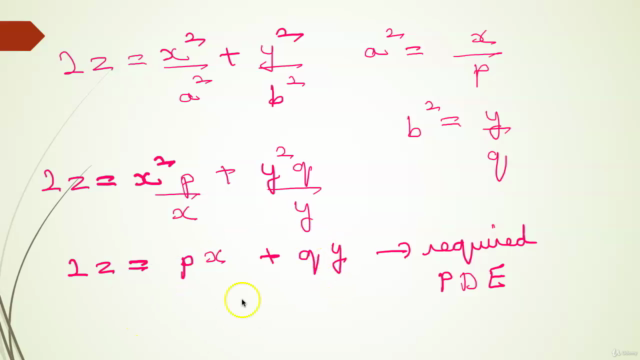 2z = x²/a² + y²/b²   a² = x/p
b² = y/q
2z = x²p/x + y²q/y
2z = px + qy → required
PDE